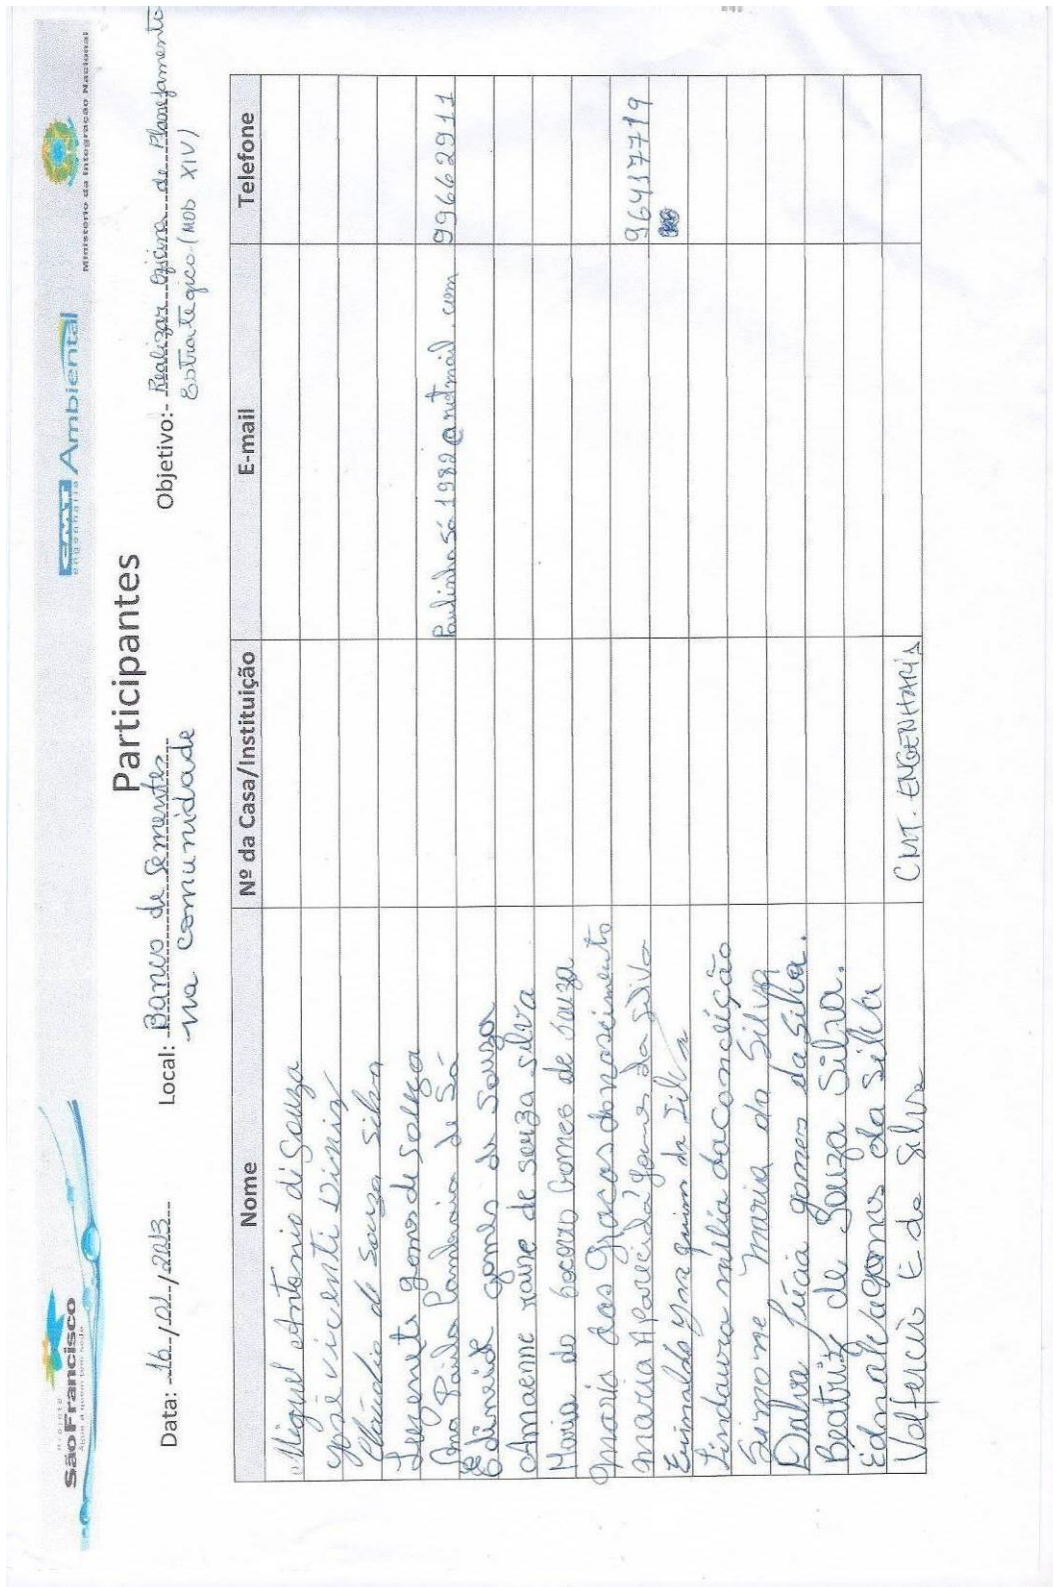 Projeto
São Francisco
Água a quem tem sede
CMT Ambiental
engenharia
Ministério da Integração Nacional
Participantes
Data: 16/01/2013 Local: Banco de Sementes Objetivo: Realizar Oficina de Planejamento
na comunidade Estratégico (MOD XIV)
Nome Nº da Casa/Instituição E-mail Telefone
Miguel Antonio di Souza
José vicenti Diniz
Claudia de Souza Silva
gomes de Souza
Ana Paula de Sá Paulinhasá1982@ 99662911
Edineide gomes de Souza
raine de souza silva
Maria do socorro Gomes de Souza
maria das Graças donascimento
maria Aparecida gomes da silva 96437719
da Silva
Lindaura da conceição
Simone maria da Silva
Dalva Lúcia gomes da silva.
Beatriz de Souza Silva.
Ednalva gomes da silva
E da Silva CMT. ENGENHARIA